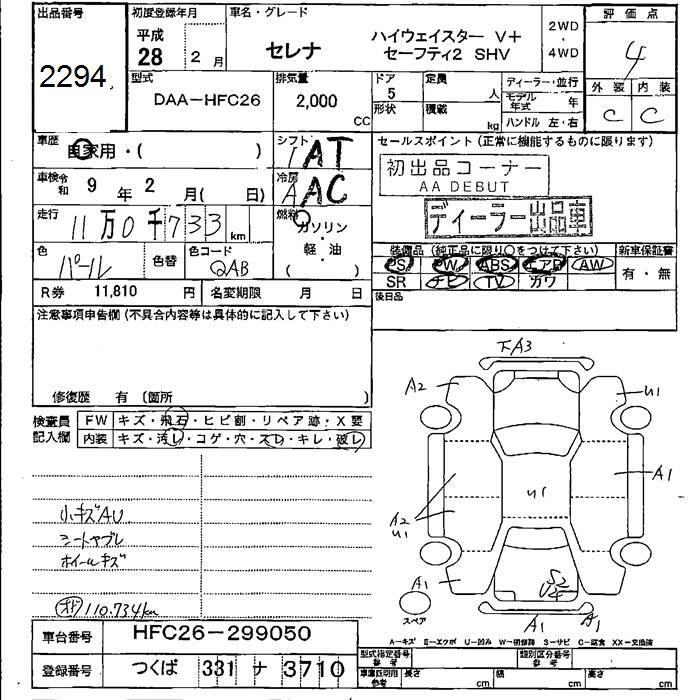 出品番号
2294
初度登録年月
平成
28 2 月
車名・グレード
セレナ
ハイウェイスター V+
セーフティ2 SHV
2WD
・
4WD
評価点
4
外装 内装
C C
型式
DAA-HFC26
排気量
2,000
CC
ドア
5
定員
人
形状
積載
kg
ディーラー・並行
モデル年式 年
ハンドル 左・右
車歴
自家用・( )
シフト
AT
車検 令和 9 年 2 月( 日)
冷房
AAC
走行
11万0千733 km
燃料
ガソリン
・
軽・油
( )
色
パール
色替
色コード
QAB
R券 11,810 円
名変期限 月 日
セールスポイント (正常に機能するものに限ります)
初出品コーナー
AA DEBUT
ディーラー出品車
装備品 (純正品に限り○をつけて下さい)
PS PW ABS エアB AW
SR ナビ TV カワ
新車保証書
有・無
後日品
注意事項申告欄 (不具合内容等は具体的に記入して下さい)
修復歴 有 (箇所 )
検査員
記入欄
FW キズ・飛石・ヒビ割・リペア跡・X要
内装 キズ・汚レ・コゲ・穴・スレ・キレ・破レ
小キズAU
シートヤブレ
ホイールキズ
オド 110.734km
下A3
A2
U1
A1
U1
A2
U1
A1
S2
スペア
A1
A1
A-キズ E-エクボ U-凹み W-補修跡 S-サビ C-腐食 XX-交換済
車台番号
HFC26-299050
登録番号
つくば 331 ナ 3710
型式指定番号
参考
類別区分番号
参考
車庫証明用
参考
長さ cm
幅 cm
高さ cm